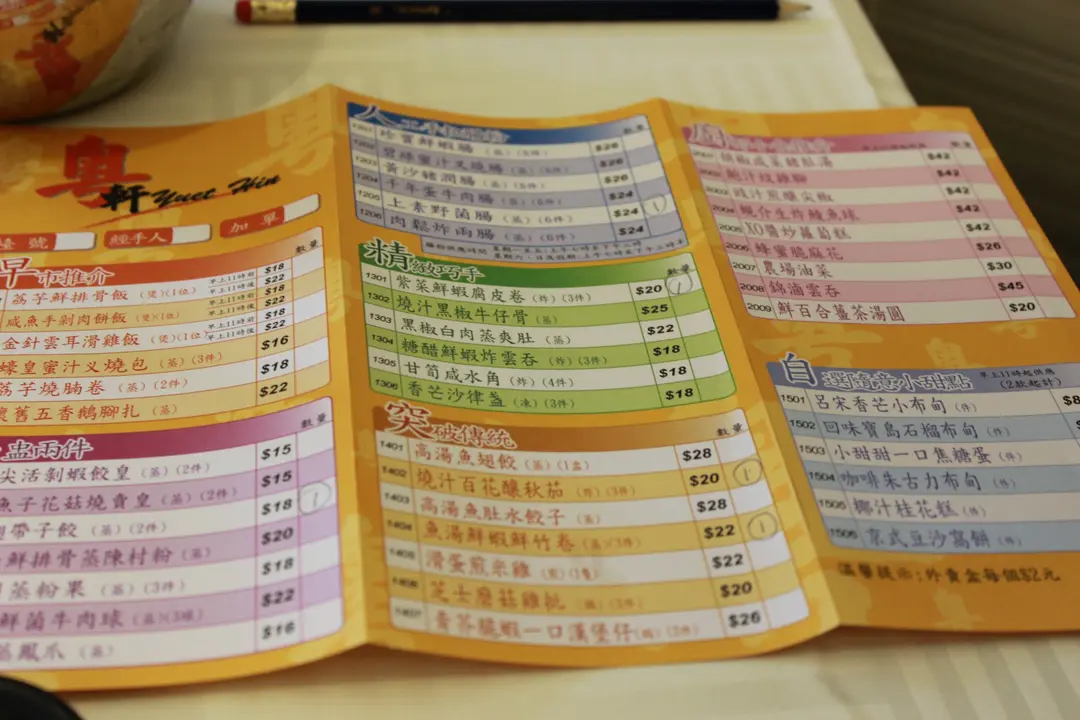 粵軒 Yuet Hin
檯號 經手人 加單
早市推介 數量
荔芋鮮排骨飯 (煲)(1位) 早上11時前 $18 早上11時後 $22
咸魚手剁肉餅飯 (煲×1位) 早上11時前 $18 早上11時後 $22
金針雲耳滑雞飯 (煲)(1位) 早上11時前 $18 早上11時後 $22
蠔皇蜜汁叉燒包 (蒸)(3件) $16
荔芋燒腩卷 (蒸)(2件) $18
懷舊五香鵝腳扎 (蒸) $22
盅兩件 數量
尖活剝蝦餃皇 (蒸)(2件) $15
魚子花菇燒賣皇 (蒸)(2件) $15
帶子餃 (蒸)(2件) $18 1
鮮排骨蒸陳村粉 (蒸) $20
蒸粉果 (蒸)(3件) $18
鮮菌牛肉球 (蒸×3球) $22
鳳爪 (蒸) $16
數量
1201 珍寶鮮蝦腸 (蒸) $26
1202 碧綠蜜汁叉燒腸 (蒸) $26
1203 黃沙豬潤腸 (蒸) $26
1204 千年蛋牛肉腸 (蒸) $24
1205 上素野菌腸 (蒸)(6件) $24 1
1206 肉鬆炸兩腸 (蒸)(6件) $24
精緻巧手 數量
1301 紫菜鮮蝦腐皮卷 (炸)(3件) $20 1
1302 燒汁黑椒牛仔骨 (蒸) $25
1303 黑椒白肉蒸爽肚 (蒸) $22
1304 糖醋鮮蝦炸雲吞 (炸)(3件) $18
1305 甘筍咸水角 (炸)(4件) $18
1306 香芒沙律盞 (凍)(3件) $18
突破傳統 數量
1401 高湯魚翅餃 (蒸)(1盅) $28
1402 燒汁百花釀秋茄 (炸)(3件) $20 1
1403 高湯魚肚水餃子 (蒸) $28
1404 魚湯鮮蝦鮮竹卷 (蒸×3件) $22 1
1405 滑蛋煎米雞 (煎)(1隻) $22
1406 芝士蘑菇雞批 (焗)(3件) $20
1407 香芥脆蝦一口漢堡仔 (焗)(3件) $26
數量
2001 胡椒咸菜豬肚湯 $42
2002 $42
2003 豉汁煎釀尖椒 $42
2004 蜆介生炸鯪魚球 $42
2005 XO醬炒蘿蔔糕 $42
2006 蜂蜜脆麻花 $26
2007 農場油菜 $30
2008 錦滷雲吞 $45
2009 鮮百合薑茶湯圓 $20
自選隨意小甜點 早上11時起供應 (2款起計)
1501 呂宋香芒小布甸 (件) $8
1502 回味寶島石榴布甸 (件)
1503 小甜甜一口焦糖蛋 (件)
1504 咖啡朱古力布甸 (件)
1505 椰汁桂花糕 (件)
1506 京式豆沙窩餅 (件)
溫馨提示:外賣盒每個$2元